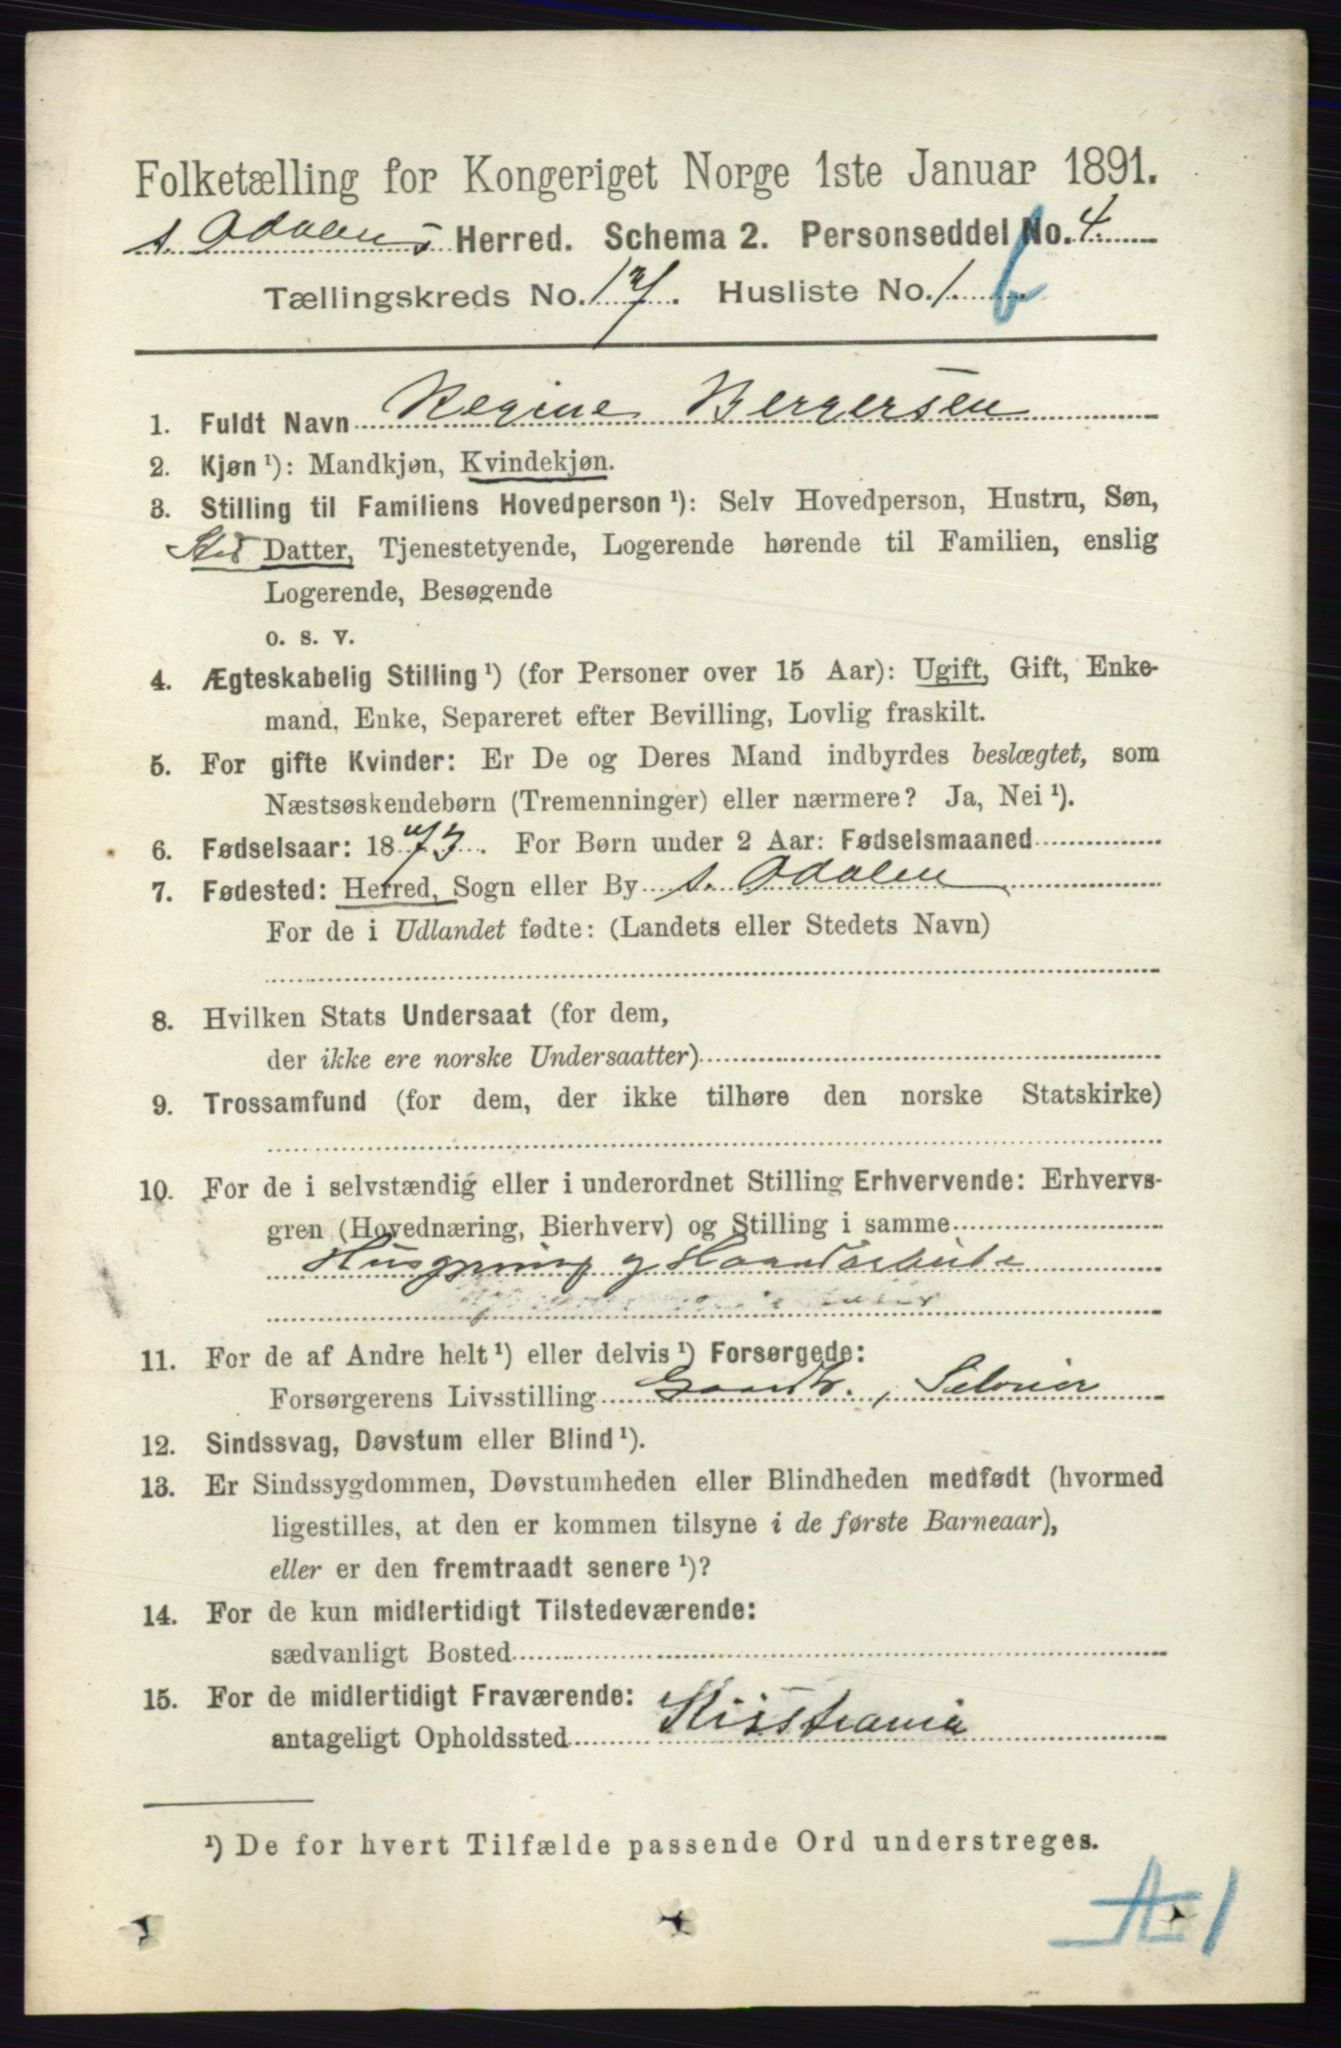 Folketælling for Kongeriget Norge 1ste Januar 1891.
s. Odalens Herred. Schema 2. Personseddel No. 4
Tællingskreds No. 17. Husliste No. 1. b
1. Fuldt Navn Regine Bergersen
2. Kjøn ¹): Mandkjøn, Kvindekjøn.
3. Stilling til Familiens Hovedperson ¹): Selv Hovedperson, Hustru, Søn,
Sted Datter, Tjenestetyende, Logerende hørende til Familien, enslig
Logerende, Besøgende
o. s. v.
4. Ægteskabelig Stilling ¹) (for Personer over 15 Aar): Ugift, Gift, Enke-
mand, Enke, Separeret efter Bevilling, Lovlig fraskilt.
5. For gifte Kvinder: Er De og Deres Mand indbyrdes beslægtet, som
Næstsøskendebørn (Tremenninger) eller nærmere? Ja, Nei ¹).
6. Fødselsaar: 1873. For Børn under 2 Aar: Fødselsmaaned
7. Fødested: Herred, Sogn eller By s. Odalen
For de i Udlandet fødte: (Landets eller Stedets Navn)
8. Hvilken Stats Undersaat (for dem,
der ikke ere norske Undersaatter)
9. Trossamfund (for dem, der ikke tilhøre den norske Statskirke)
10. For de i selvstændig eller i underordnet Stilling Erhvervende: Erhvervs-
gren (Hovednæring, Bierhverv) og Stilling i samme
Husgjerning og Haandarbeide
11. For de af Andre helt ¹) eller delvis ¹) Forsørgede:
Forsørgerens Livsstilling Gaardbr., Selveier
12. Sindssvag, Døvstum eller Blind ¹).
13. Er Sindssygdommen, Døvstumheden eller Blindheden medfødt (hvormed
ligestilles, at den er kommen tilsyne i de første Barneaar),
eller er den fremtraadt senere ¹)?
14. For de kun midlertidigt Tilstedeværende:
sædvanligt Bosted
15. For de midlertidigt Fraværende:
antageligt Opholdssted Kristiania
¹) De for hvert Tilfælde passende Ord understreges.
A 1